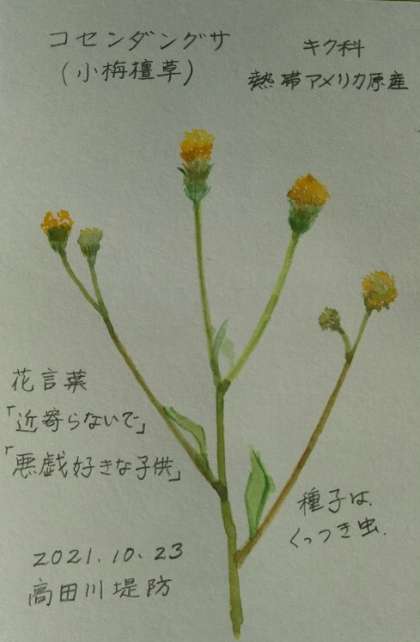 コセンダングサ
(小栴檀草)
キク科
熱帯アメリカ原産
花言葉
「近寄らないで」
「悪戯好きな子供」
種子は
くっつき虫.
2021.10.23
高田川堤防